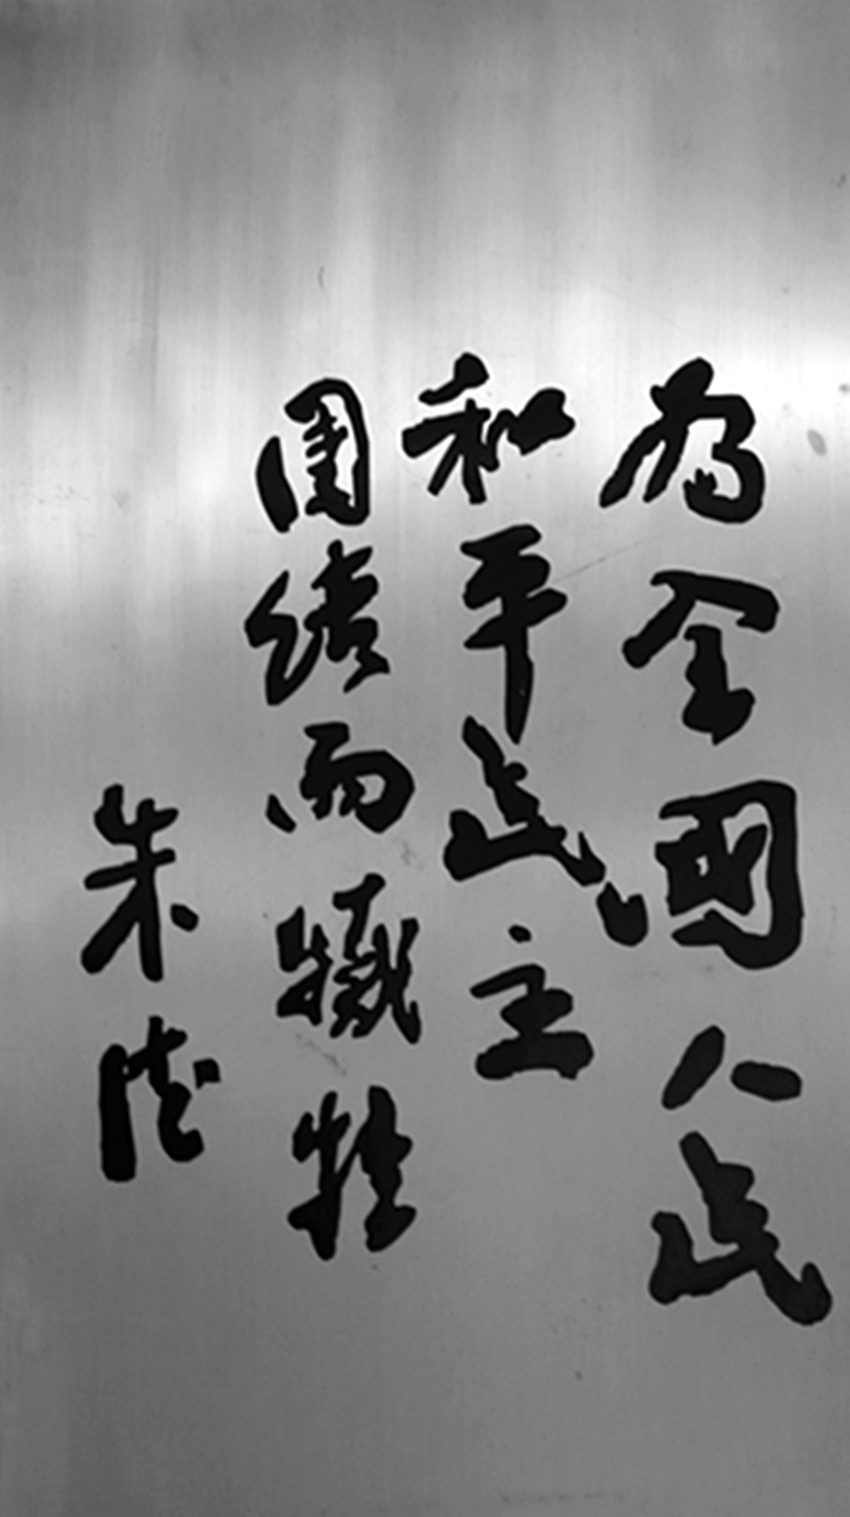 為全國人民
和平民主
團結而犧牲
朱德